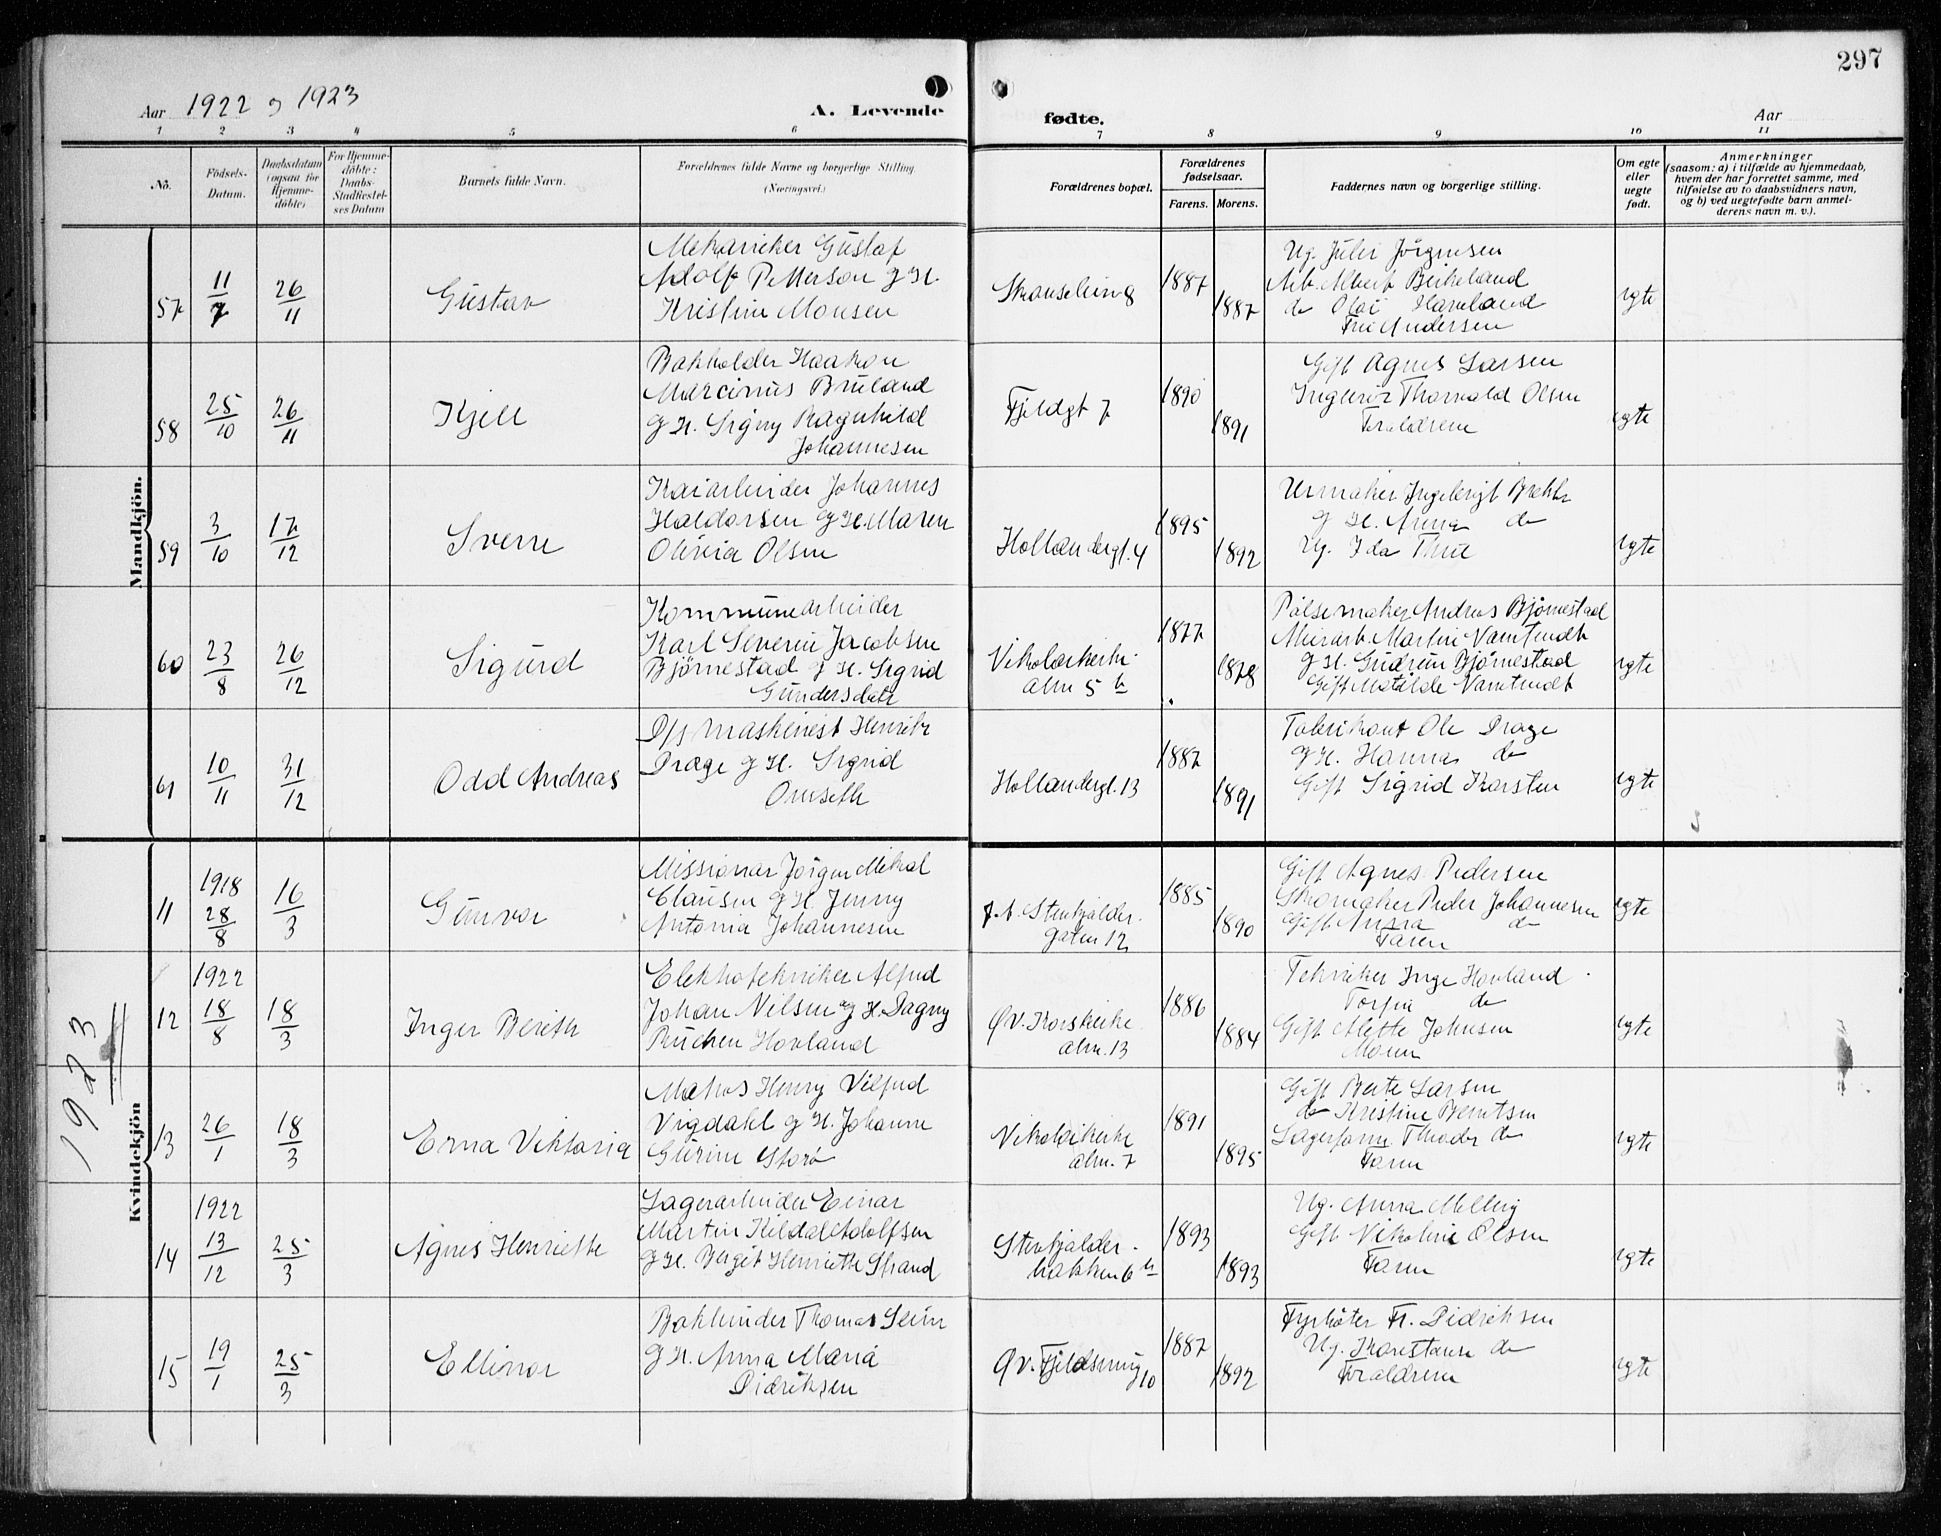 297
Aar 1922 og 1923 A. Levende fødte. Aar
1 2 3 4 5 6 7 8 9 10 11
No. Födsels-Datum. Daabsdatum (ogsaa for Hjemme-döbte) For Hjemme-döbte: Daabs-Stadfæstel-ses Datum Barnets fulde Navn. Forældrenes fulde Navne og borgerlige Stilling. (Næringsvei.) Forældrenes bopæl. Forældrenes fødselsaar. Farens. Morens. Faddernes navn og borgerlige stilling. Om egte eller uegte født. Anmerkninger (saasom: a) i tilfælde av hjemmedaab, hvem der har forrettet samme, med tilføielse av to daabsvidners navn, og b) ved uegtefødte barn anmel-derens navn m. v.).
Mandkjön.
57 11/7 26/11 Gustav
Mekaniker Gustaf
Adolf Petterson g H.
Kristine Monsen
1887 1887
Ug. Julie Jörgensen
Arb. Albert Birkeland
do Olai Haveland
Andersen
egte
58 25/10 26/11 Kjell
Bokholder Haakon
Marcinius Bruland
g H. Signy Ragnhild
Johannesen
Fjeldgt 7
1890 1891
Gift Agnes Larsen
Ingeniör Thorvald Olsen
Forældrene
egte
59 3/10 17/12 Sverre
Kaiarbeider Johannes
Haldorsen g H. Maren
Olivia Olsen
Hollandergt. 4
1895 1892
Urmaker Ingebrigt
g H. Anna do
Ug. Ida
egte
60 23/8 26/12 Sigurd
Kommunearbeider
Karl Severin Jacobsen
Bjørnestad g H. Sigrid
Gundersdatr
Nikolaikirke-
alm 5 b
1877 1878
Pölsemaker Andreas Bjørnestad
Murarb. Martin
g H. Gudrun Bjørnestad
Gift Matilde
egte
61 10/11 31/12 Odd Andreas
D/s maskinist Henrik
Drage g H. Sigrid
Omseth
Hollandergt. 13
1887 1891
Fabrikant Ole Drage
g H. Hanna do
Gift Sigrid Karsten
egte
1923
Kvindekjön
11 1918 28/8 16/3 Gunvor
Missionær Jörgen Mikal
Clausen g H. Jenny
Antonia Johannesen
Stenkjelder-
gaten 12
1885 1890
Gift Agnes Pedersen
Skomaker Peder Johannesen
Gift Anna do
Faren
egte
12 1922 18/8 18/3 Inger Berith
Elektrotekniker Alfred
Johan Nilsen og H. Dagny
Hovland
Øv. Korskirke
alm. 13
1886 1884
Tekniker Inge Hovland
Torfin do
Gift Mette Johnsen
Moren
egte
13 26/1 18/3 Erna Viktoria
Matros Henry Vilfred
Vigdahl g H. Johanne
Gurine Storø
Nikolaikirke
alm. 7
1891 1895
Gift Berte Larsen
do Kristine Berntsen
Lagerform. Theodor do
Faren
egte
14 1922 13/12 25/3 Agnes Henriette
Lagerarbeider Einar
Martin Kildal Adolfsen
g H. Birgit Henriette Strand
Stenkjelder-
bakken 6 b
1893 1893
Ug. Anna Melling
Gift Nikoline Olsen
Faren
egte
15 19/1 25/3 Ellinor
Bokbinder Thomas Seim
g H. Anna Maria
Didriksen
Øv. Fjeldsmug 10
1887 1892
Fyrböter Fr. Didriksen
Ug. Konstanse do
Forældrene
egte